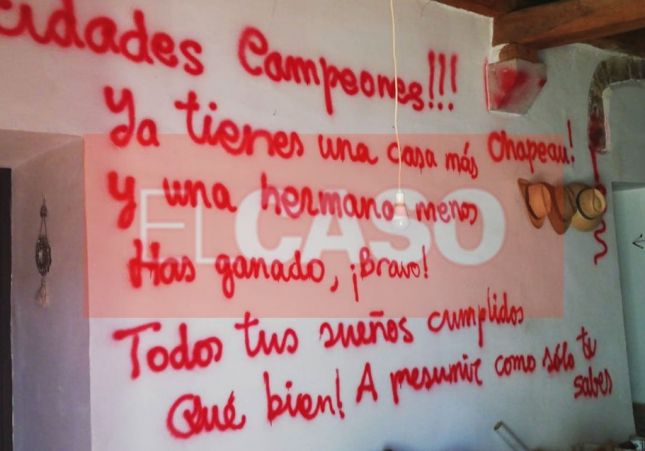 cidades Campeones!!!
Ya tienes una casa más Chapeau!
Y una hermana menos
EL CASO
Has ganado, ¡Bravo!
Todos tus sueños cumplidos
Qué bien! A presumir como sólo tu
sabes